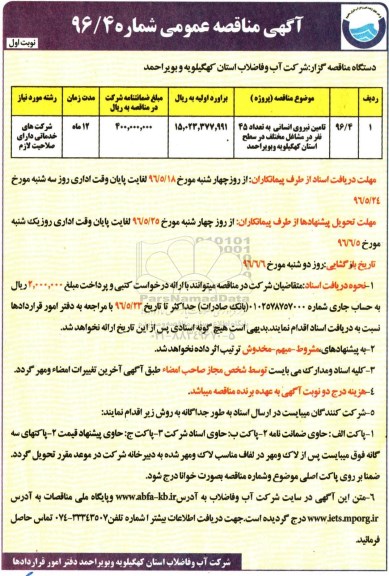 آگهی مناقصه عمومی شماره ۹۶/۴
نوبت اول
دستگاه مناقصه گزار: شرکت آب وفاضلاب استان کهگیلویه و بویراحمد
ردیف | موضوع مناقصه (پروژه) | براورد اولیه به ریال | مبلغ ضمانتنامه شرکت در مناقصه به ریال | مدت زمان | رشته مورد نیاز
۱ | ۹۶/۴ | تامین نیروی انسانی به تعداد ۴۵ نفر در مشاغل مختلف در سطح استان کهگیلویه وبویراحمد | ۱۵,۰۲۳,۳۷۷,۹۹۱ | ۴۰۰,۰۰۰,۰۰۰ | ۱۲ ماه | شرکت های خدماتی دارای صلاحیت لازم
مهلت دریافت اسناد از طرف پیمانکاران: از روز چهار شنبه مورخ ۹۶/۵/۱۸ لغایت پایان وقت اداری روز سه شنبه مورخ
۹۶/۵/۲۴
مهلت تحویل پیشنهادها از طرف پیمانکاران: از روز چهار شنبه مورخ ۹۶/۵/۲۵ لغایت پایان وقت اداری روزیک شنبه
مورخ ۹۶/۶/۵
تاریخ بازگشایی: روز دو شنبه مورخ ۹۶/۶/۶
۱-نحوه دریافت اسناد: متقاضیان شرکت در مناقصه میتوانند با ارائه درخواست کتبی و پرداخت مبلغ ۲,۰۰۰,۰۰۰ ریال
به حساب جاری شماره ۰۱۰۲۵۷۸۷۵۷۰۰۰ (بانک صادرات) حداکثر تا تاریخ ۹۶/۵/۲۳ با مراجعه به دفتر امور قراردادها
نسبت به دریافت اسناد اقدام نمایند. بدیهی است هیچ گونه اسنادی پس از این تاریخ ارائه نخواهد شد.
۲-به پیشنهادهای مشروط-مبهم-مخدوش ترتیب اثر داده نخواهد شد.
۳-کلیه اسناد ومدارک می بایست توسط شخص مجاز صاحب امضاء طبق آگهی آخرین تغییرات امضاء ومهر گردد.
۴-هزینه درج دو نوبت آگهی به عهده برنده مناقصه میباشد.
۵-شرکت کنندگان میبایست در ارسال اسناد به طور جداگانه به روش زیر اقدام نمایند:
۱-پاکت الف: حاوی ضمانت نامه ۲-پاکت ب: حاوی اسناد شرکت ۳-پاکت ج: حاوی پیشنهاد قیمت ۲-پاکتهای سه
گانه فوق میبایست پس از لاک ومهر در لفاف مناسب لاک ومهر شده به دبیرخانه شرکت در موعد مقرر تحویل گردد.
ضمنا بر روی پاکت اصلی موضوع وشماره مناقصه بصورت خوانا درج شود.
۶-متن این آگهی در سایت شرکت آب وفاضلاب به آدرس www.abfa-kb.ir وپایگاه ملی مناقصات به آدرس
www.iets.mporg.ir درج گردیده است. جهت دریافت اطلاعات بیشتر با شماره تلفن ۳۳۳۴۳۵۰۷-۰۷۴ تماس حاصل
فرمائید.
شرکت آب وفاضلاب استان کهگیلویه وبویراحمد دفتر امور قراردادها